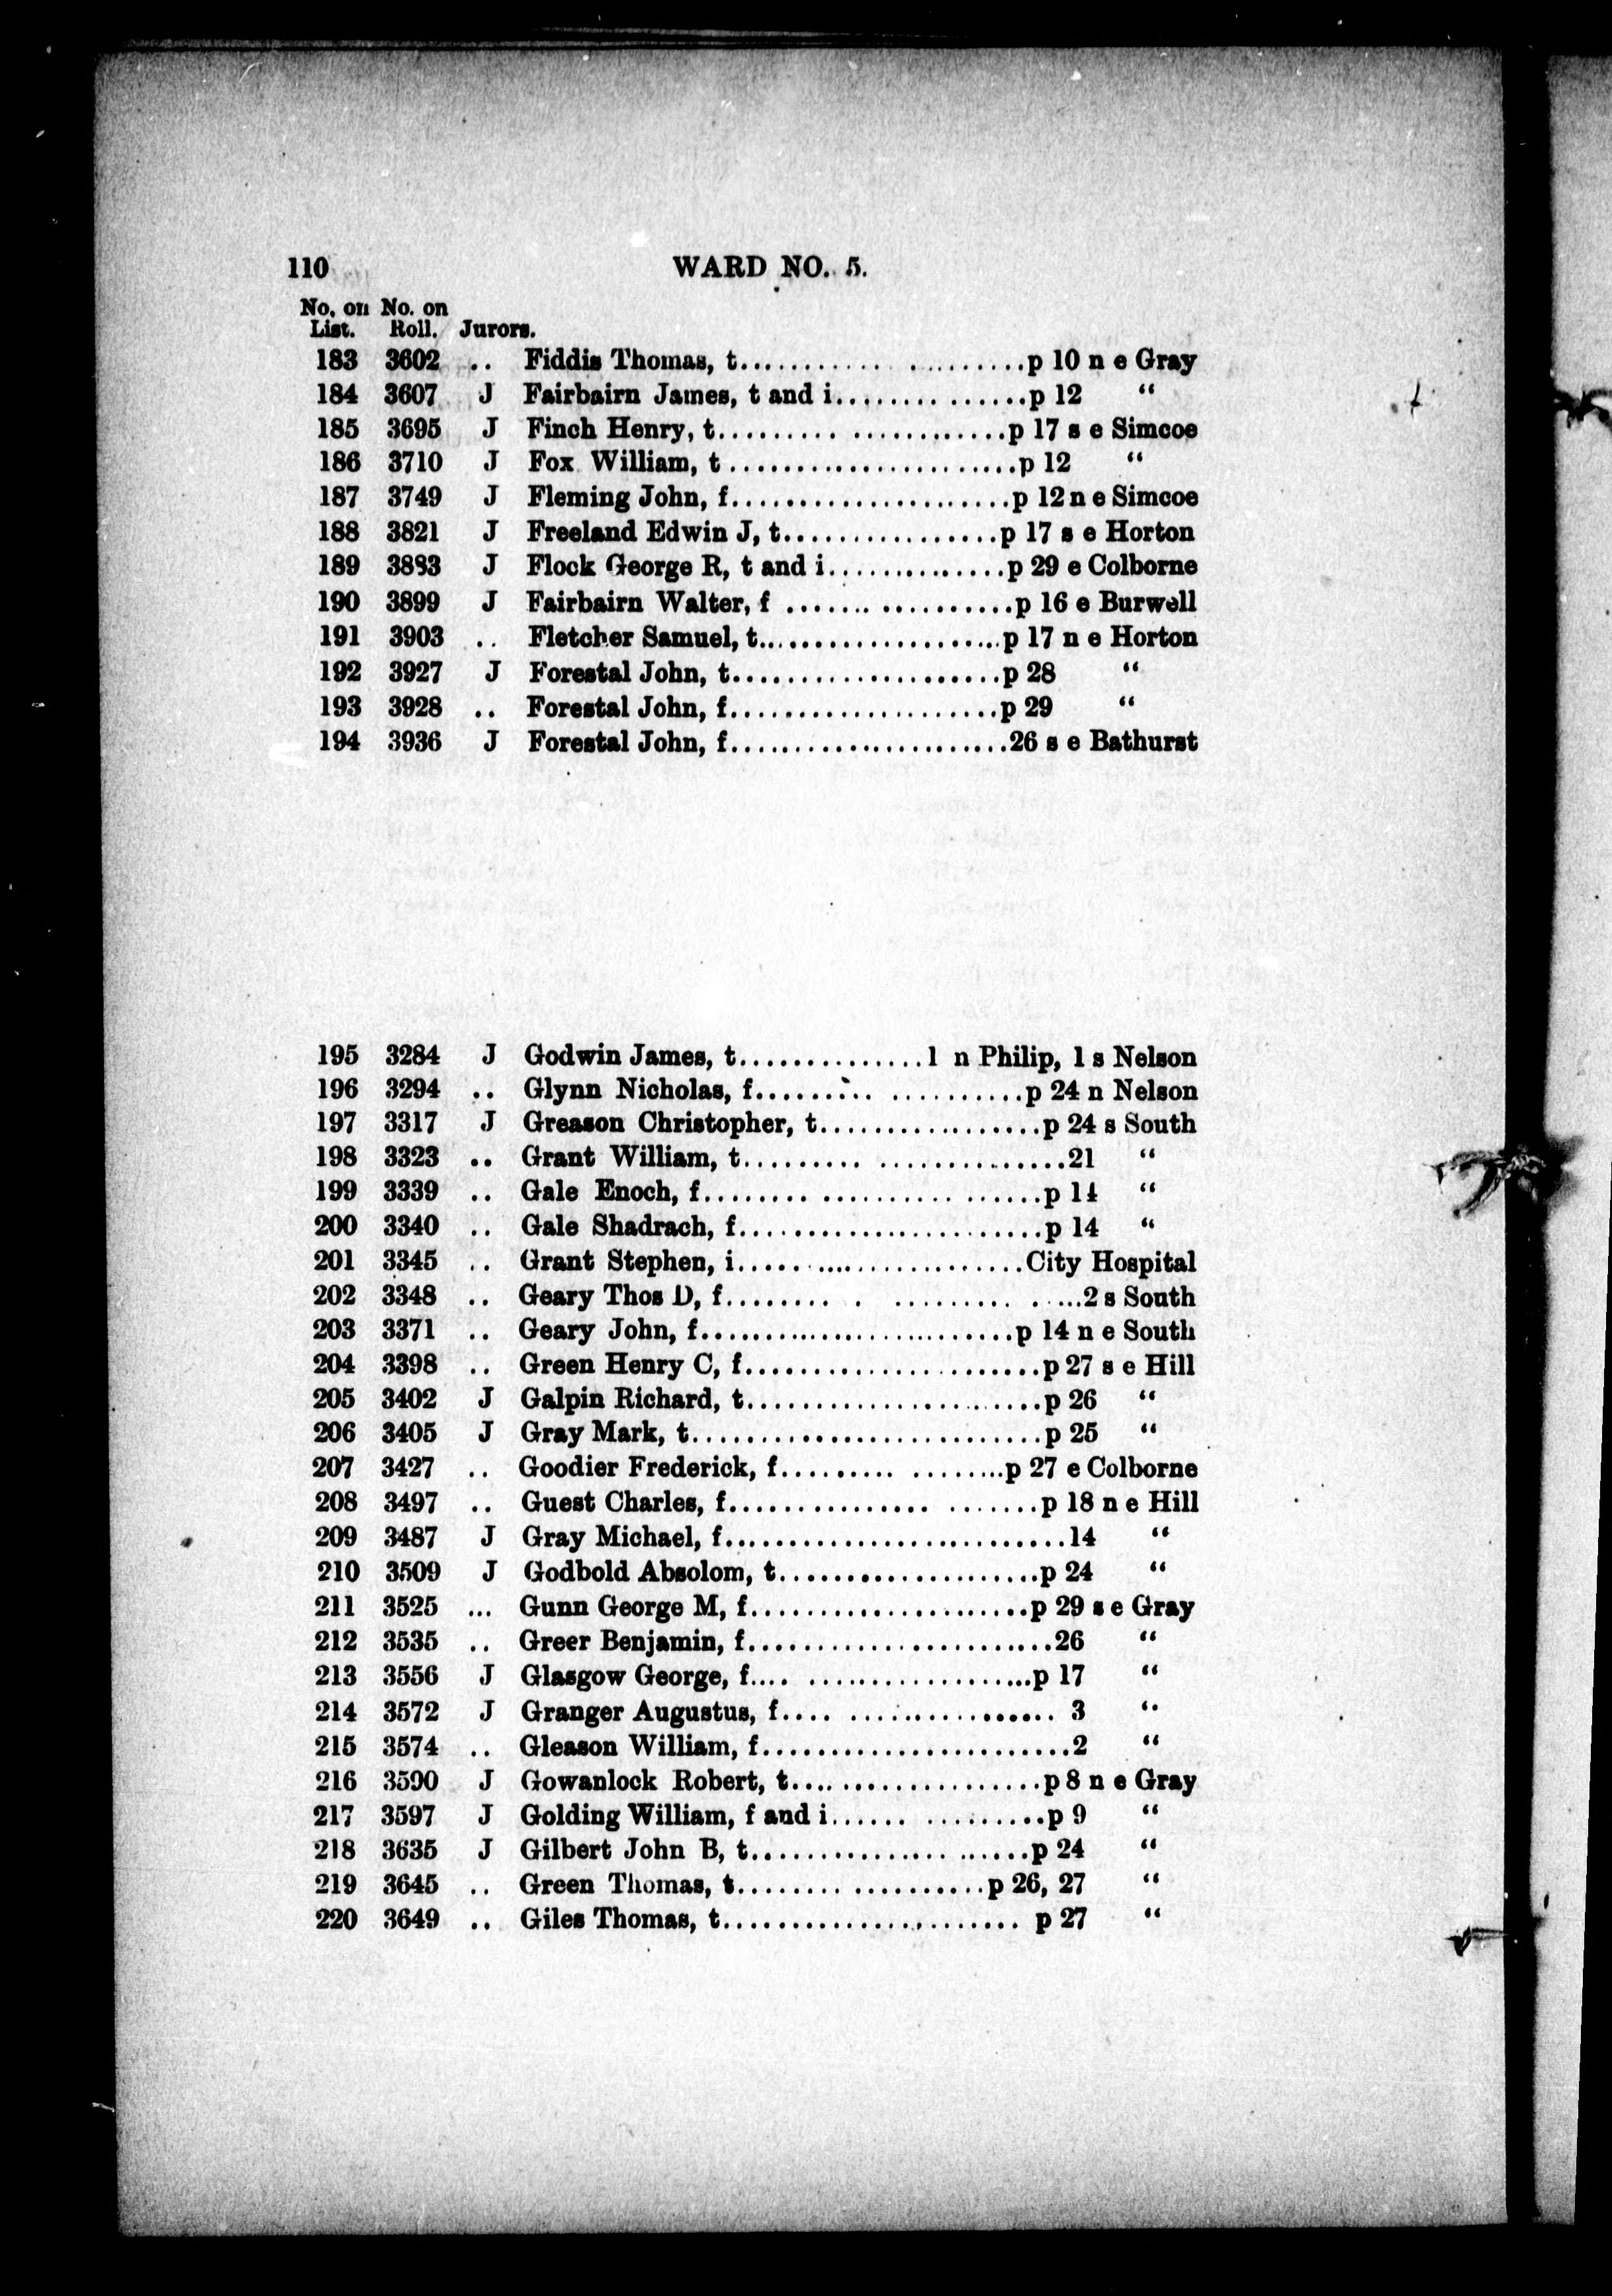 110 WARD NO. 5.
No. on No. on
List. Roll. Jurors.
183 3602 .. Fiddis Thomas, t.....................p 10 n e Gray
184 3607 J Fairbairn James, t and i..............p 12 “
185 3695 J Finch Henry, t.....................p 17 s e Simcoe
186 3710 J Fox William, t......................p 12 “
187 3749 J Fleming John, f.....................p 12 n e Simcoe
188 3821 J Freeland Edwin J, t................p 17 s e Horton
189 3883 J Flock George R, t and i.............p 29 e Colborne
190 3899 J Fairbairn Walter, f .................p 16 e Burwell
191 3903 .. Fletcher Samuel, t...................p 17 n e Horton
192 3927 J Forestal John, t....................p 28 “
193 3928 .. Forestal John, f....................p 29 “
194 3936 J Forestal John, f.....................26 s e Bathurst
195 3284 J Godwin James, t..............1 n Philip, 1 s Nelson
196 3294 .. Glynn Nicholas, f...................p 24 n Nelson
197 3317 J Greason Christopher, t.................p 24 s South
198 3323 .. Grant William, t.......................21 “
199 3339 .. Gale Enoch, f........................p 14 “
200 3340 .. Gale Shadrach, f.......................p 14 “
201 3345 .. Grant Stephen, i.....................City Hospital
202 3348 .. Geary Thos D, f.......................2 s South
203 3371 .. Geary John, f.......................p 14 n e South
204 3398 .. Green Henry C, f......................p 27 s e Hill
205 3402 J Galpin Richard, t......................p 26 “
206 3405 J Gray Mark, t..........................p 25 “
207 3427 .. Goodier Frederick, f.................p 27 e Colborne
208 3497 .. Guest Charles, f......................p 18 n e Hill
209 3487 J Gray Michael, f.........................14 “
210 3509 J Godbold Absolom, t...................p 24 “
211 3525 ... Gunn George M, f.....................p 29 s e Gray
212 3535 .. Greer Benjamin, f.......................26 “
213 3556 J Glasgow George, f.....................p 17 “
214 3572 J Granger Augustus, f................... 3 “
215 3574 .. Gleason William, f.......................2 “
216 3590 J Gowanlock Robert, t...................p 8 n e Gray
217 3597 J Golding William, f and i...............p 9 “
218 3635 J Gilbert John B, t.....................p 24 “
219 3645 .. Green Thomas, t..................p 26, 27 “
220 3649 .. Giles Thomas, t...................... p 27 “